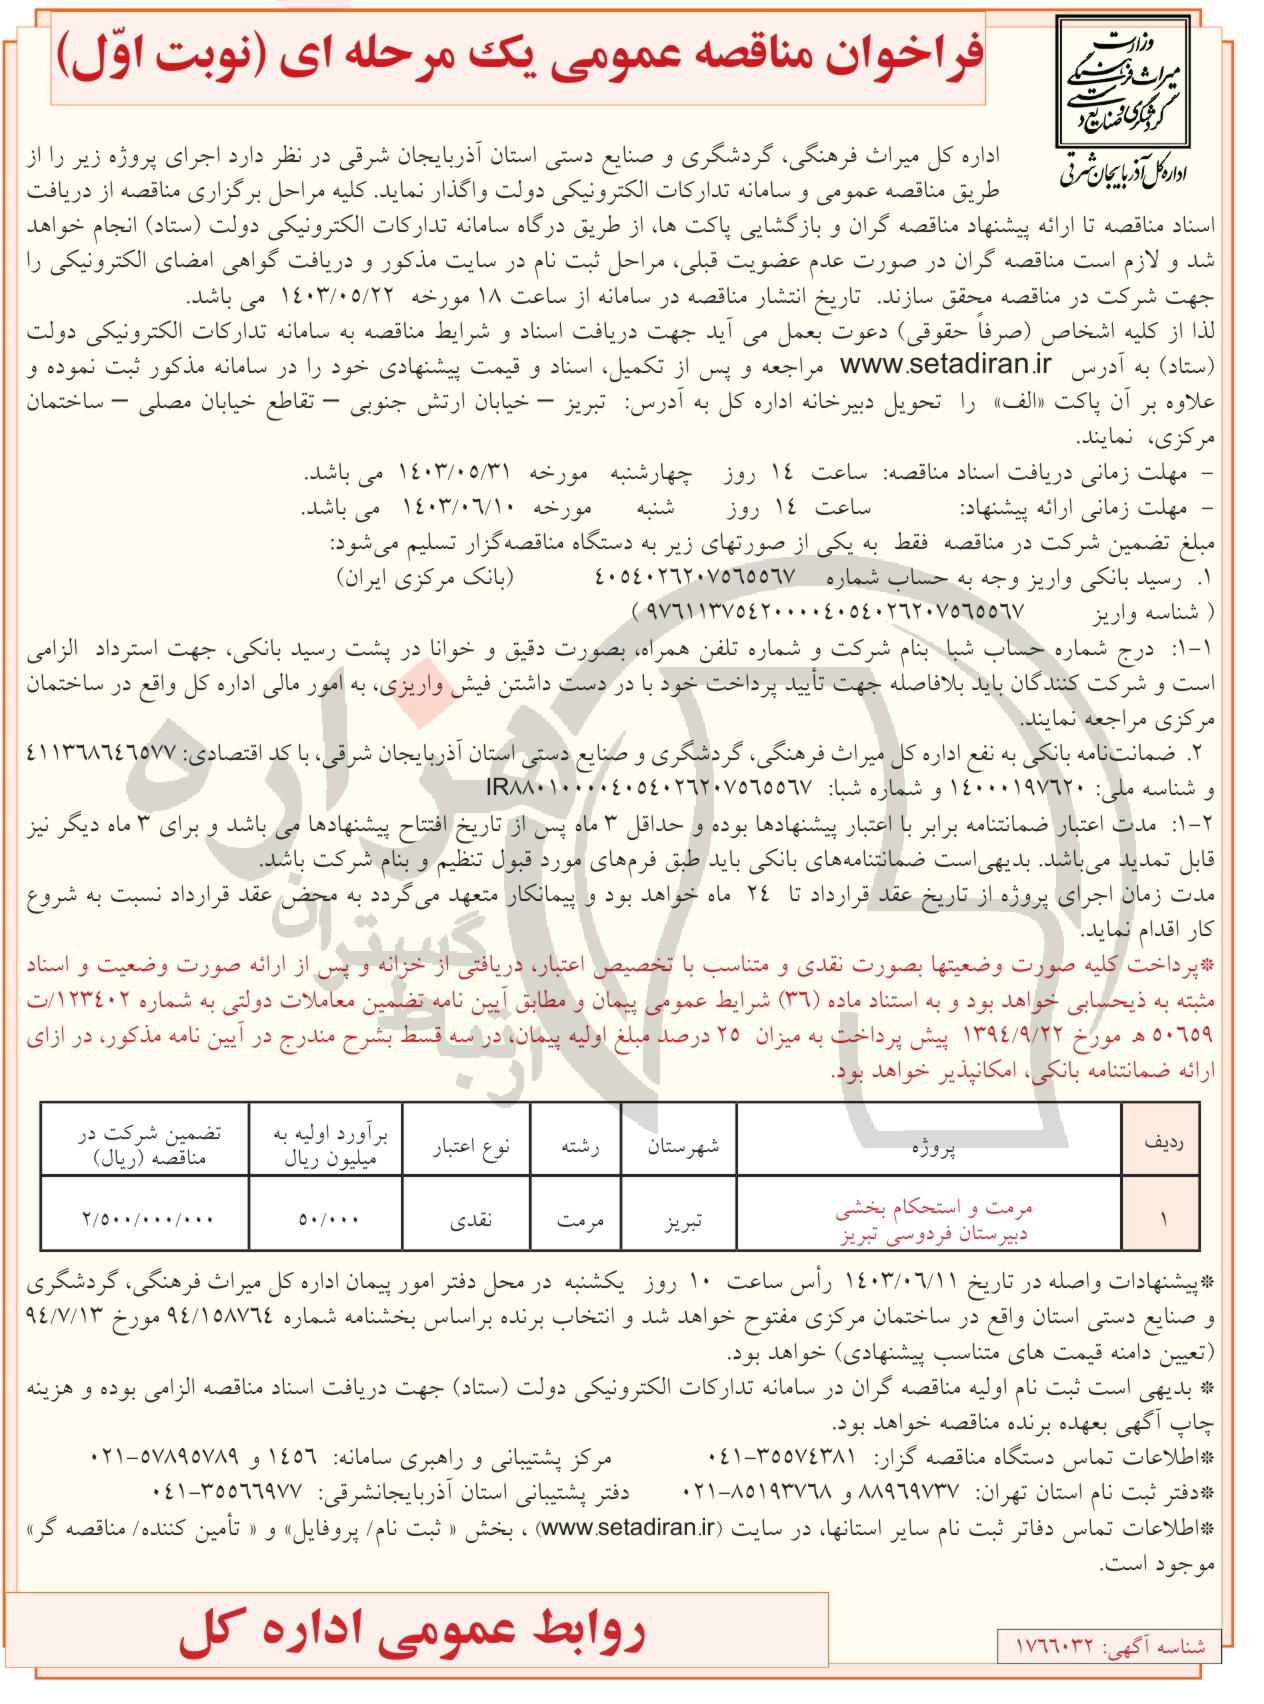 فراخوان مناقصه عمومی یک مرحله ای (نوبت اوّل)
وزارت
میراث فرهنگی
گردشگری و صنایع دستی
اداره کل آذربایجان شرقی
اداره کل میراث فرهنگی، گردشگری و صنایع دستی استان آذربایجان شرقی در نظر دارد اجرای پروژه زیر را از
طریق مناقصه عمومی و سامانه تدارکات الکترونیکی دولت واگذار نماید. کلیه مراحل برگزاری مناقصه از دریافت
اسناد مناقصه تا ارائه پیشنهاد مناقصه گران و بازگشایی پاکت ها، از طریق درگاه سامانه تدارکات الکترونیکی دولت (ستاد) انجام خواهد
شد و لازم است مناقصه گران در صورت عدم عضویت قبلی، مراحل ثبت نام در سایت مذکور و دریافت گواهی امضای الکترونیکی را
جهت شرکت در مناقصه محقق سازند. تاریخ انتشار مناقصه در سامانه از ساعت ۱۸ مورخه ۱٤۰۳/۰۵/۲۲ می باشد.
لذا از کلیه اشخاص (صرفاً حقوقی) دعوت بعمل می آید جهت دریافت اسناد و شرایط مناقصه به سامانه تدارکات الکترونیکی دولت
(ستاد) به آدرس www.setadiran.ir مراجعه و پس از تکمیل، اسناد و قیمت پیشنهادی خود را در سامانه مذکور ثبت نموده و
علاوه بر آن پاکت «الف» را تحویل دبیرخانه اداره کل به آدرس: تبریز – خیابان ارتش جنوبی – تقاطع خیابان مصلی – ساختمان
مرکزی، نمایند.
- مهلت زمانی دریافت اسناد مناقصه: ساعت ۱٤ روز چهارشنبه مورخه ۱٤۰۳/۰۵/۳۱ می باشد.
- مهلت زمانی ارائه پیشنهاد: ساعت ۱٤ روز شنبه مورخه ۱٤۰۳/۰٦/۱۰ می باشد.
مبلغ تضمین شرکت در مناقصه فقط به یکی از صورتهای زیر به دستگاه مناقصه‌گزار تسلیم می‌شود:
۱. رسید بانکی واریز وجه به حساب شماره ٤۰۵٤۰۲٦۲۰۷۵٦۵۵٦۷ (بانک مرکزی ایران)
( شناسه واریز ۹۷٦۱۱۳۷۵٤۲۰۰۰۰٤۰۵٤۰۲٦۲۰۷۵٦۵۵٦۷ )
۱-۱: درج شماره حساب شبا بنام شرکت و شماره تلفن همراه، بصورت دقیق و خوانا در پشت رسید بانکی، جهت استرداد الزامی
است و شرکت کنندگان باید بلافاصله جهت تأیید پرداخت خود با در دست داشتن فیش واریزی، به امور مالی اداره کل واقع در ساختمان
مرکزی مراجعه نمایند.
۲. ضمانت‌نامه بانکی به نفع اداره کل میراث فرهنگی، گردشگری و صنایع دستی استان آذربایجان شرقی، با کد اقتصادی: ٤۱۱۳٦۸٦٤٦۵۷۷
و شناسه ملی: ۱٤۰۰۰۱۹۷٦۲۰ و شماره شبا: IR۸۸۰۱۰۰۰۰٤۰۵٤۰۲٦۲۰۷۵٦۵۵٦۷
۱-۲: مدت اعتبار ضمانتنامه برابر با اعتبار پیشنهادها بوده و حداقل ۳ ماه پس از تاریخ افتتاح پیشنهادها می باشد و برای ۳ ماه دیگر نیز
قابل تمدید می‌باشد. بدیهی‌است ضمانتنامه‌های بانکی باید طبق فرم‌های مورد قبول تنظیم و بنام شرکت باشد.
مدت زمان اجرای پروژه از تاریخ عقد قرارداد تا ۲٤ ماه خواهد بود و پیمانکار متعهد می‌گردد به محض عقد قرارداد نسبت به شروع
کار اقدام نماید.
*پرداخت کلیه صورت وضعیتها بصورت نقدی و متناسب با تخصیص اعتبار، دریافتی از خزانه و پس از ارائه صورت وضعیت و اسناد
مثبته به ذیحسابی خواهد بود و به استناد ماده (۳٦) شرایط عمومی پیمان و مطابق آیین نامه تضمین معاملات دولتی به شماره ۱۲۳٤۰۲/ت
۵۰٦۵۹ ه مورخ ۱۳۹٤/۹/۲۲ پیش پرداخت به میزان ۲۵ درصد مبلغ اولیه پیمان، در سه قسط بشرح مندرج در آیین نامه مذکور، در ازای
ارائه ضمانتنامه بانکی، امکانپذیر خواهد بود.
ردیف پروژه شهرستان رشته نوع اعتبار برآورد اولیه به میلیون ریال تضمین شرکت در مناقصه (ریال)
۱ مرمت و استحکام بخشی دبیرستان فردوسی تبریز تبریز مرمت نقدی ۵۰/۰۰۰ ۲/۵۰۰/۰۰۰/۰۰۰
*پیشنهادات واصله در تاریخ ۱٤۰۳/۰٦/۱۱ رأس ساعت ۱۰ روز یکشنبه در محل دفتر امور پیمان اداره کل میراث فرهنگی، گردشگری
و صنایع دستی استان واقع در ساختمان مرکزی مفتوح خواهد شد و انتخاب برنده براساس بخشنامه شماره ۹٤/۱۵۸۷٦٤ مورخ ۹٤/۷/۱۳
(تعیین دامنه قیمت های متناسب پیشنهادی) خواهد بود.
* بدیهی است ثبت نام اولیه مناقصه گران در سامانه تدارکات الکترونیکی دولت (ستاد) جهت دریافت اسناد مناقصه الزامی بوده و هزینه
چاپ آگهی بعهده برنده مناقصه خواهد بود.
*اطلاعات تماس دستگاه مناقصه گزار: ۰٤۱-۳۵۵۷٤۳۸۱ مرکز پشتیبانی و راهبری سامانه: ۱٤۵٦ و ۰۲۱-۵۷۸۹۵۷۸۹
*دفتر ثبت نام استان تهران: ۸۸۹٦۹۷۳۷ و ۰۲۱-۸۵۱۹۳۷٦۸ دفتر پشتیبانی استان آذربایجانشرقی: ۰٤۱-۳۵۵٦٦۹۷۷
*اطلاعات تماس دفاتر ثبت نام سایر استانها، در سایت (www.setadiran.ir) ، بخش « ثبت نام/ پروفایل» و « تأمین کننده/ مناقصه گر»
موجود است.
روابط عمومی اداره کل
شناسه آگهی: ۱۷٦٦۰۳۲
هزاره